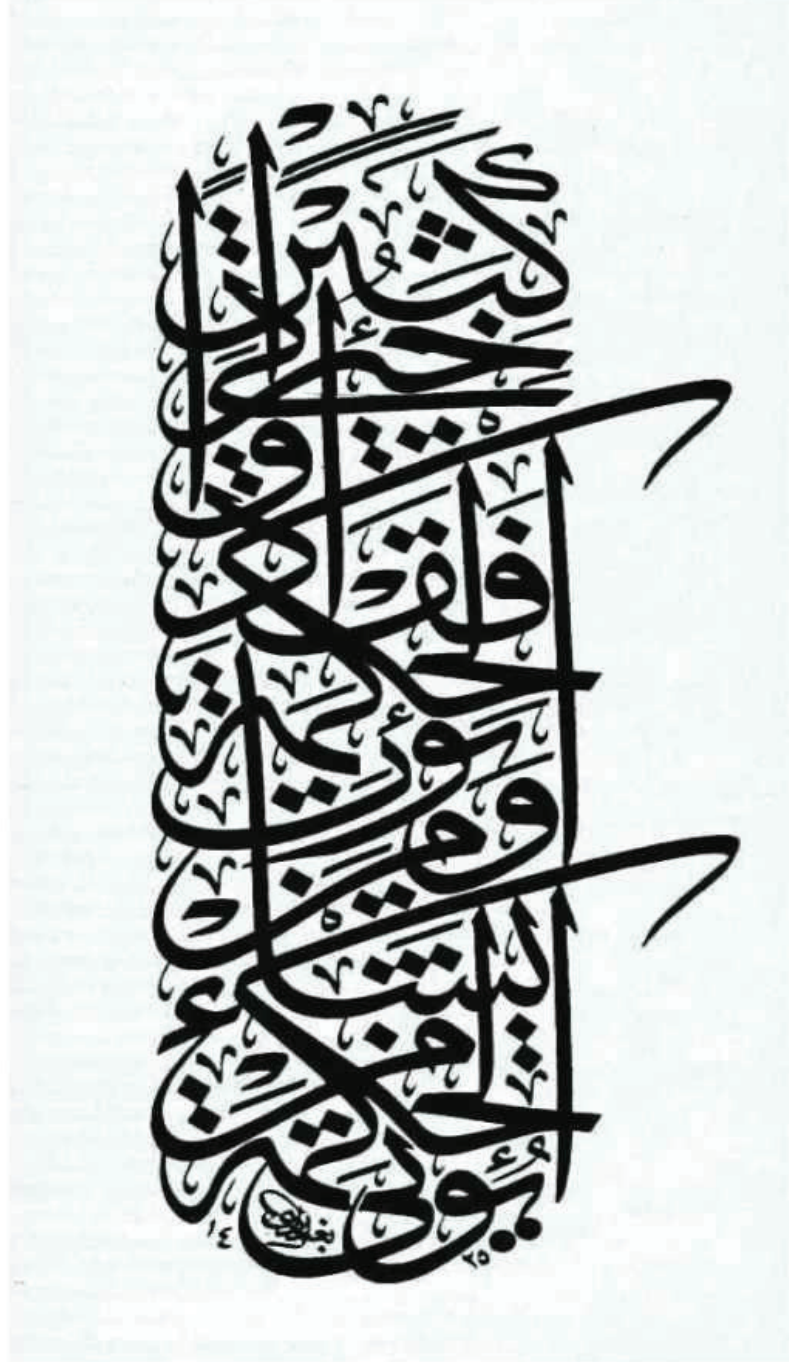 يُؤْتِي الْحِكْمَةَ مَنْ يَشَاءُ
وَمَنْ يُؤْتَ الْحِكْمَةَ
فَقَدْ أُوتِيَ خَيْرًا
كَثِيرًا
١٤
٢٥